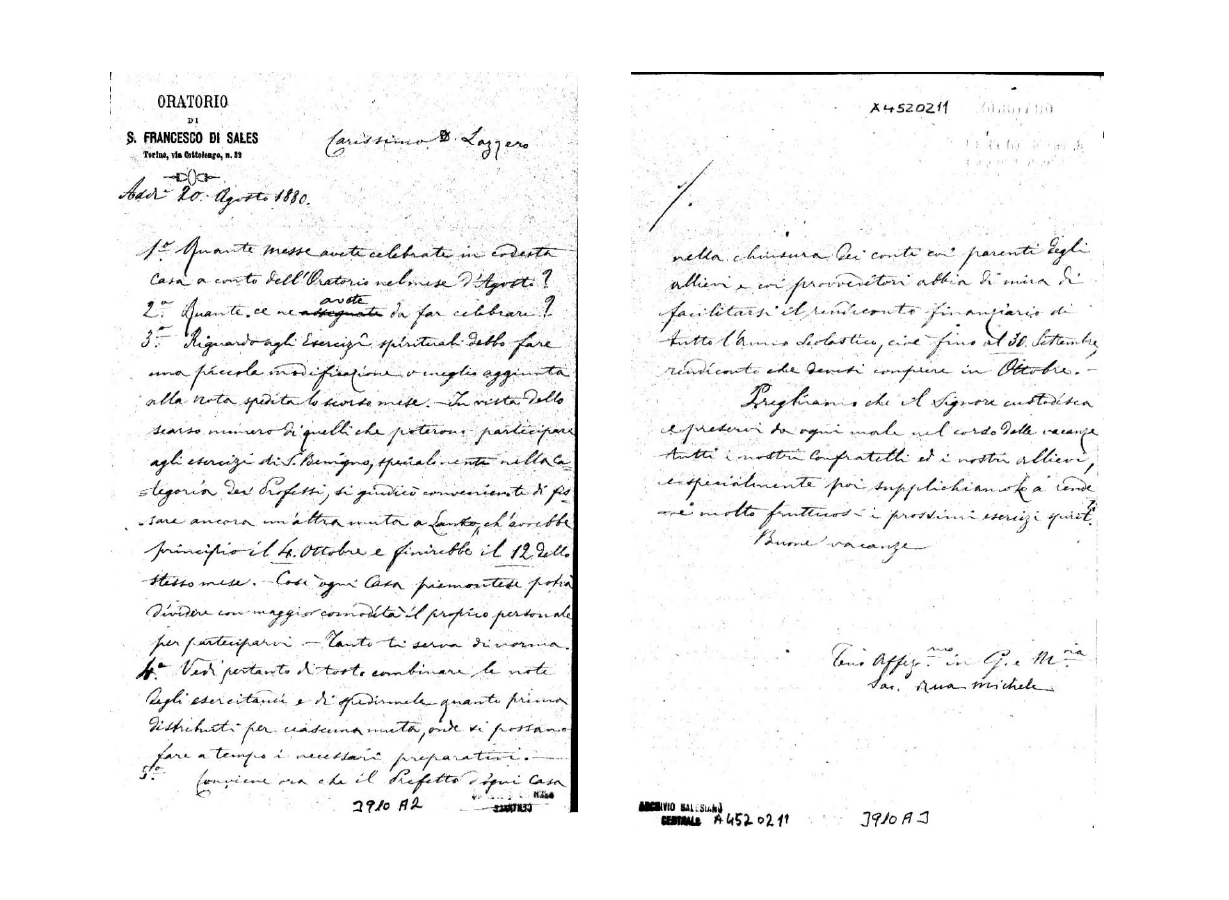 ORATORIO
DI
S. FRANCESCO DI SALES
Torino, via Cottolengo, n. 32
Carissimo D. Lazzero
Addì 20. Agosto 1880.
1.° Quante messe avete celebrate in codesta
Casa a conto dell'Oratorio nel mese d'Agosto?
avete
2.° Quante ce ne assegnate da far celebrare?
3.° Riguardo agli Esercizi spirituali debbo fare
una piccola modificazione o meglio aggiunta
alla nota spedita lo scorso mese. - In vista dello
scarso numero di quelli che poterono participare
agli esercizi di S. Benigno, specialmente nella Ca=
=tegoria dei Professi, si giudicò conveniente di fis=
=sare ancora un'altra muta a Lanzo, ch'avrebbe
principio il 4. Ottobre e finirebbe il 12 dello
stesso mese. - Così ogni Casa piemontese potrà
dividere con maggior comodità il proprio personale
per parteciparvi - Tanto ti serva di norma.
4.° Vedi pertanto di tosto combinare le note
degli esercitandi e di spedirmele quanto prima
distribuiti per ciascuna muta, onde si possano
fare a tempo i necessari preparativi. -
5.° Conviene ora che il Prefetto d'ogni Casa
3910 A2
CENTRALE
A4520211
nella chiusura dei conti coi parenti degli
allievi e coi provveditori abbia di mira di
facilitarsi il rendiconto finanziario di
tutto l'Anno Scolastico, cioè fino al 30. Settembre,
rendiconto che devesi compiere in Ottobre. -
Preghiamo che il Signore custodisca
e preservi da ogni male nel corso delle vacanze
tutti i nostri Confratelli ed i nostri allievi,
e specialmente poi supplichiamolo a rende
re molto fruttuosi i prossimi esercizi spirit.li
Buone vacanze
Tuo Affez.mo in G. e M.ria
Sac. Rua Michele
ARCHIVIO SALESIANO
CENTRALE A4520211
3910 A3